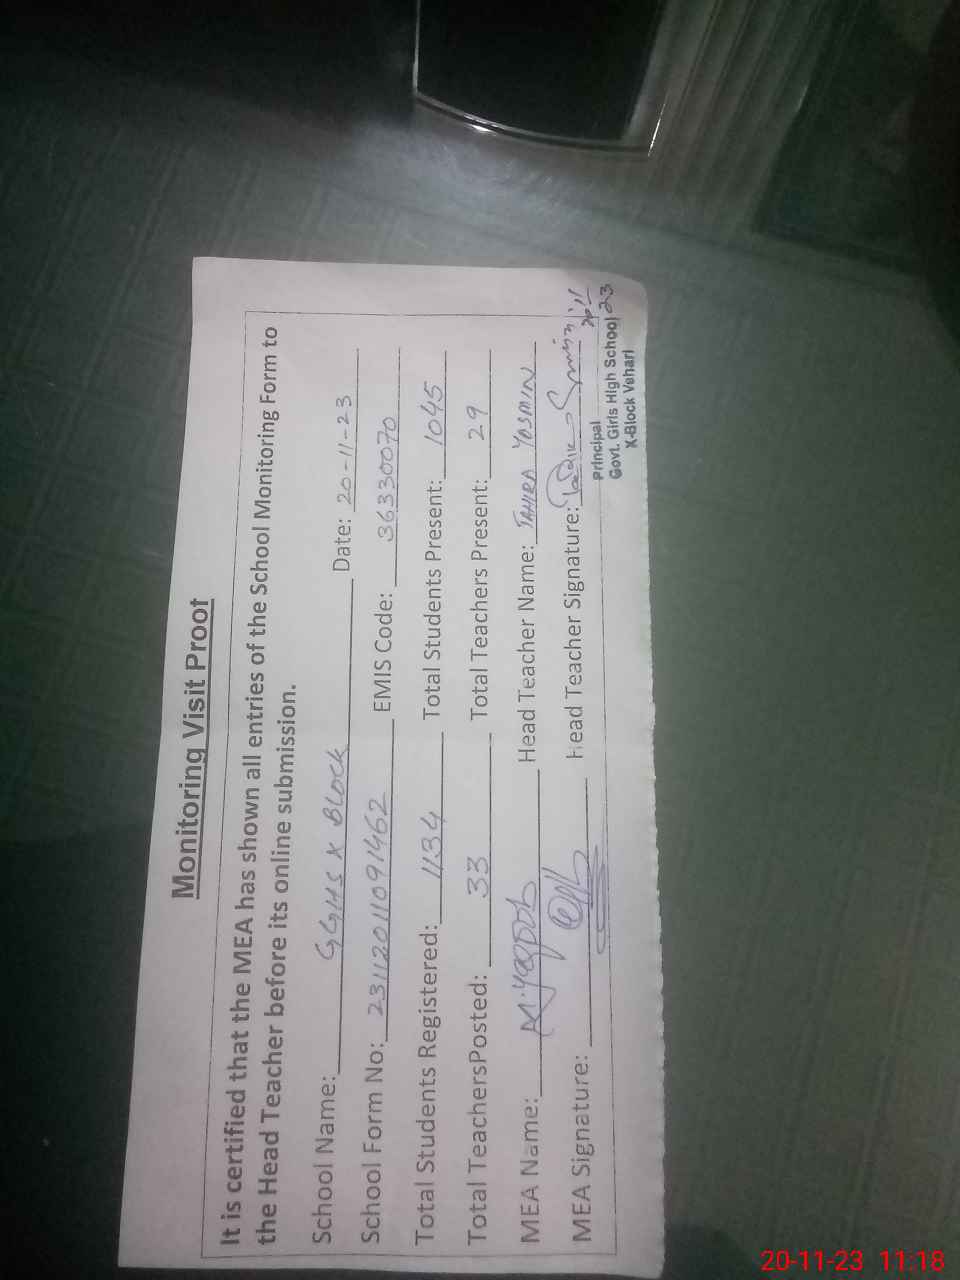 Monitoring Visit Proof
It is certified that the MEA has shown all entries of the School Monitoring Form to
the Head Teacher before its online submission.
School Name: GGHS X BLOCK Date: 20-11-23
School Form No: 23112011091462 EMIS Code: 36330070
Total Students Registered: 1134 Total Students Present: 1045
Total TeachersPosted: 33 Total Teachers Present: 29
MEA Name: M. Yaqoob Head Teacher Name: TAHIRA YASMIN
MEA Signature: Head Teacher Signature:
20/11
23
Principal
Govt. Girls High School
X-Block Vehari
20-11-23 11:18